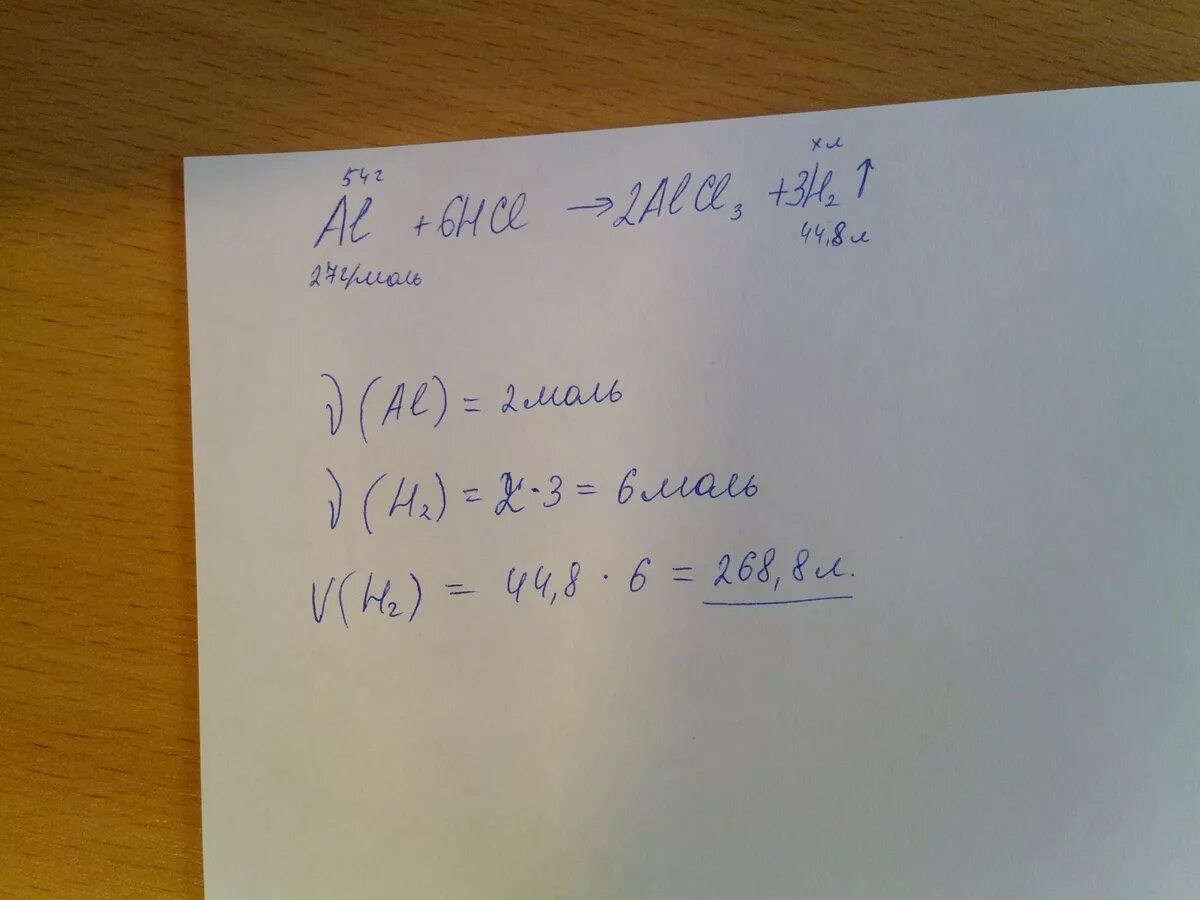 54г хл
Al + 6HCl → 2AlCl₃ + 3H₂↑
27г/моль 44,8 л
ν(Al) = 2моль
ν(H₂) = 2·3 = 6моль
V(H₂) = 44,8 · 6 = 268,8л.